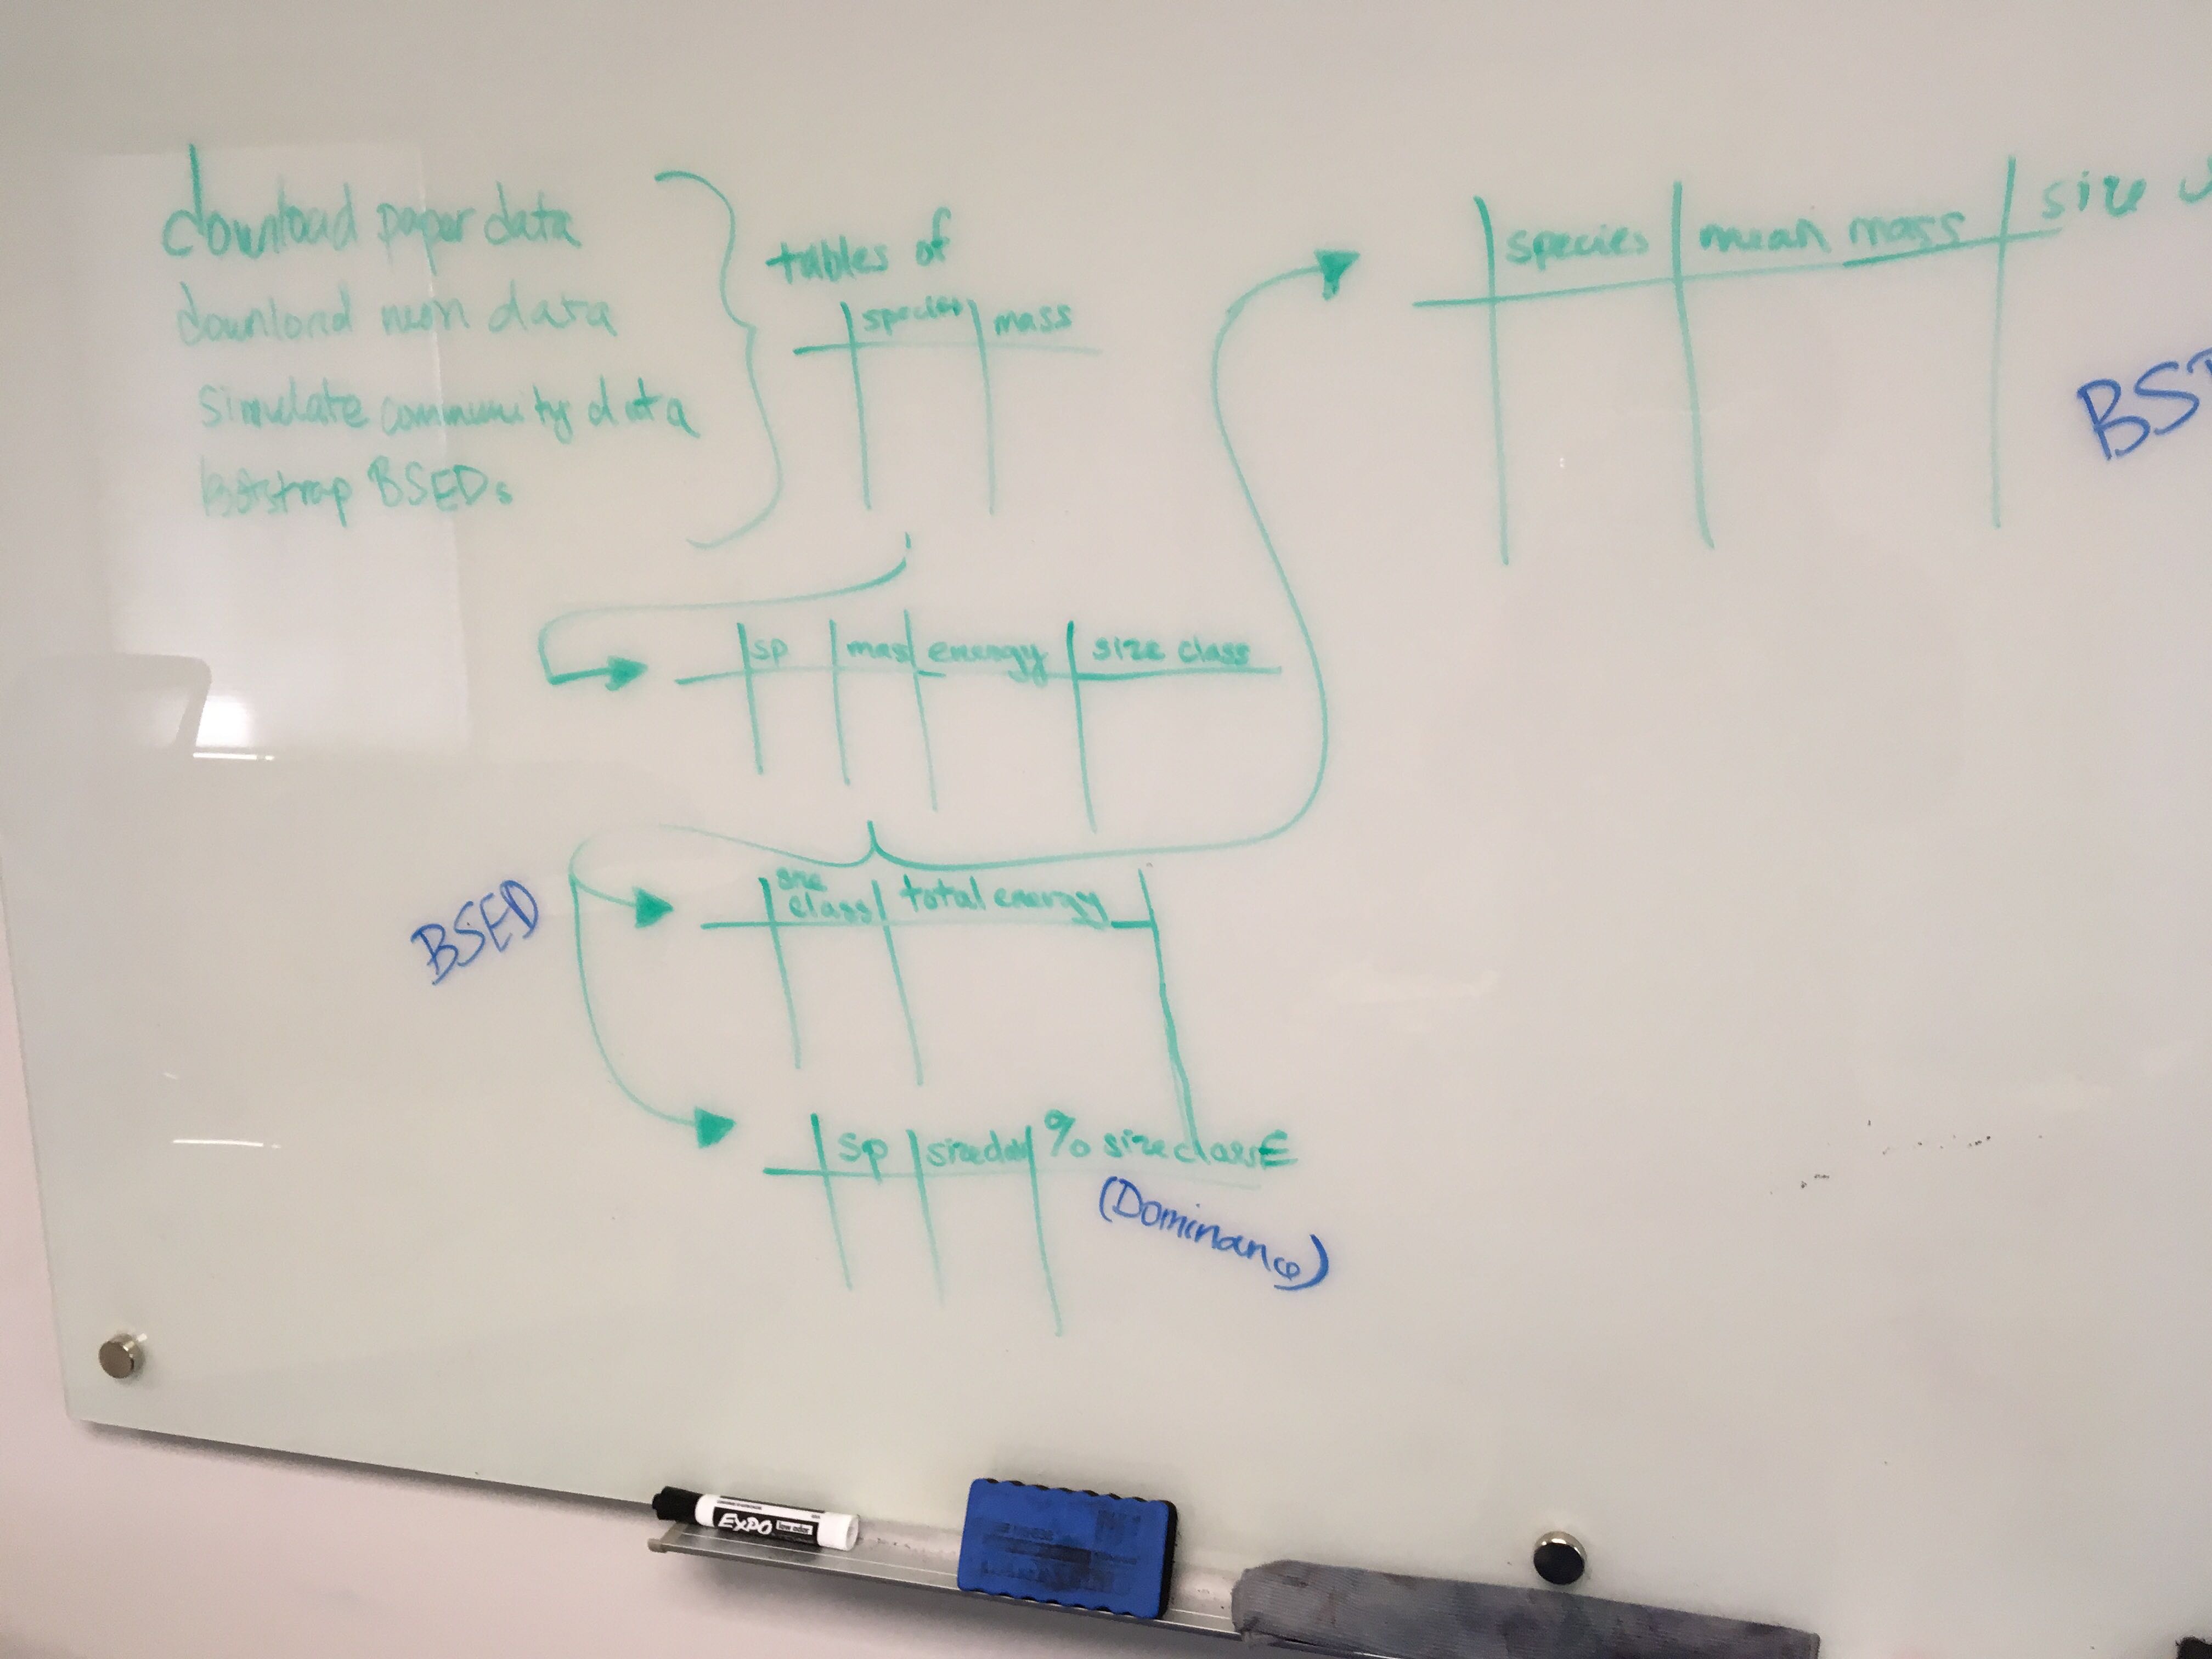 download paper data
download neon data
simulate community data
bootstrap BSEDs
tables of
species mass
sp mass energy size class
BSED
size class total energy
sp size class % size class E
(Dominance)
species mean mass size
EXPO
low odor